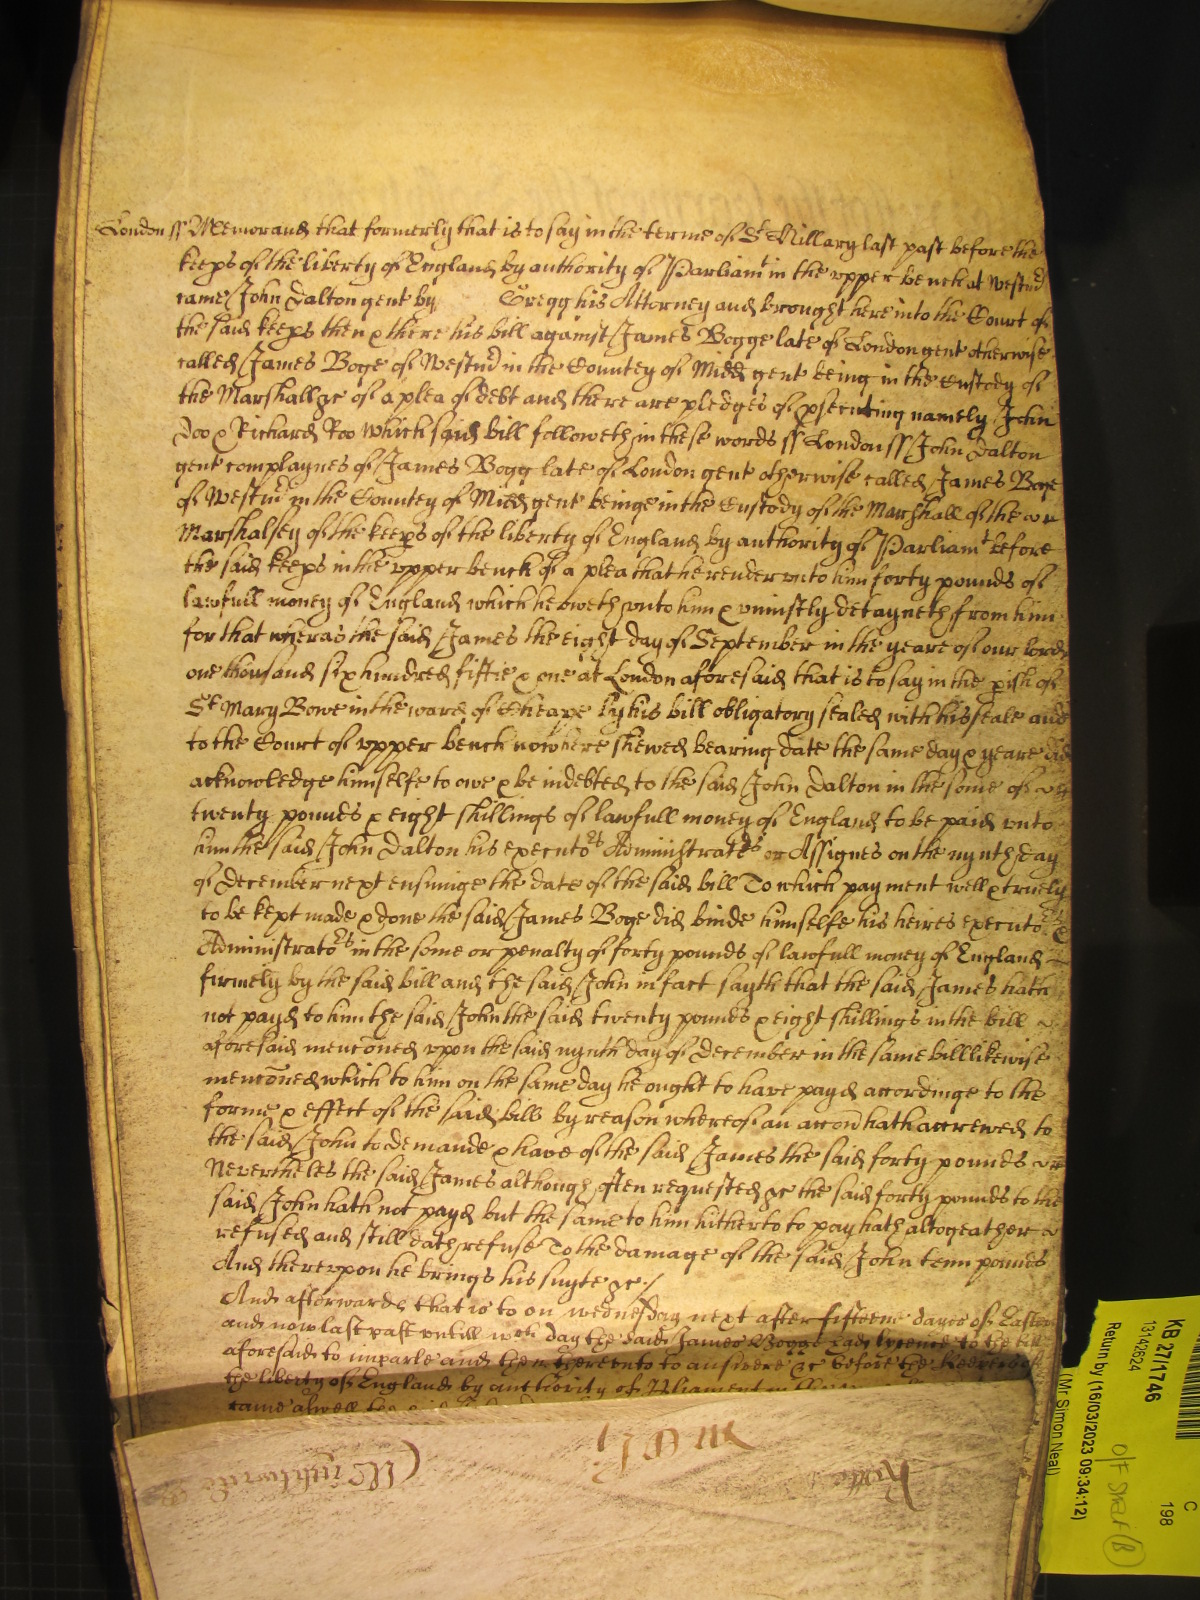 London ss Memorand that formerly that is to say in the terme of St Hillary last past before the
keeps of the liberty of England by authority of Parliamt in the upper bench at Westmr
came John Dalton gent by Gregg his Attorney and brought here into the Court of
the said keeps then & there his bill against James Bogge late of London gent otherwise
called James Boge of Westmr in the Countey of Midd gent being in the Custody of
the Marshall &c of a plea of debt and there are pledges of psecuting namely John
Doo & Richard Roo Which said bill followeth in these words ss London ss John Dalton
gent complaynes of James Bogg late of London gent otherwise called James Boge
of Westmr in the Countey of Midd gent beinge in the Custody of the Marshall of the
Marshalsey of the keeps of the liberty of England by authority of Parliamt before
the said keeps in the upper bench of a plea that he render unto him forty pounds of
lawfull money of England which he oweth unto him & uniustly detayneth from him
for that wheras the said James the eight day of September in the yeare of our lord
one thousand six hundred fiftie & one at London aforesaid that is to say in the pish of
St Mary Bowe in the ward of Cheape by his bill obligatory sealed with his seale and
to the Court of upper bench now here shewed bearing date the same day & yeare did
acknowledge himselfe to owe & be indebted to the said John Dalton in the some of
twenty pounds & eight shillings of lawfull money of England to be paid unto
him the said John Dalton his executors Administrators or Assignes on the nynth day
of December next ensuinge the date of the said bill To which payment well & truely
to be kept made & done the said James Boge did binde himselfe his heires executors &
Administrators in the some or penalty of forty pounds of lawfull money of England
firmely by the said bill and the said John in fact sayth that the said James hath
not payd to him the said John the said twenty pounds & eight shillings in the bill
aforesaid menconed upon the said nynth day of December in the same bill likewise
menconed which to him on the same day he ought to have payd accordinge to the
forme & effect of the said bill by reason whereof an accon hath accrewed to
the said John to demande & have of the said James the said forty pounds
Nevertheles the said James although often requested &c the said forty pounds to the
said John hath not payd but the same to him hitherto to pay hath altogeather
refused and still doth refuse To the damage of the said John tenn pounds
And thereupon he brings his suyte &c
And afterwards that is to on wednesday next after fifteene dayes of Easter
and now last past untill wch day the said James Bogge had lycence to the bill
aforesaid to imparle and then thereunto to answere &c before the Keepers of
the liberty of England by authority of Parliament in
came aswell the said
KB 27/1746
13142624
Return by (16/03/2023 09:34:12)
(Mr Simon Neal)
C
198
O/F Shelf (B)